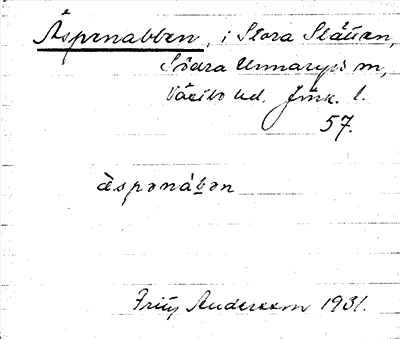 Äspenabben, i Stora Slätten,
Södra Unnaryds sn,
Västbo hd. Jönk. l.
57.
ä̀spənábən
Fritz Andersson 1931.